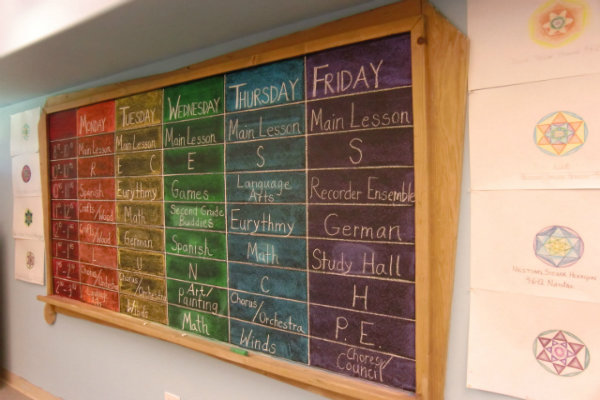 MONDAY TUESDAY WEDNESDAY THURSDAY FRIDAY
Main Lesson Main Lesson Main Lesson Main Lesson Main Lesson
R E C E S S
Spanish Eurythmy Games Language Arts Recorder Ensemble
Crafts/Wood Math Second Grade Buddies Eurythmy German
Crafts/Wood German Spanish Math Study Hall
L U N C H
Chorus/Orchestra Chorus/Orchestra Art/Painting Chorus/Orchestra P.E.
Language Arts Winds Math Winds Chores/Council